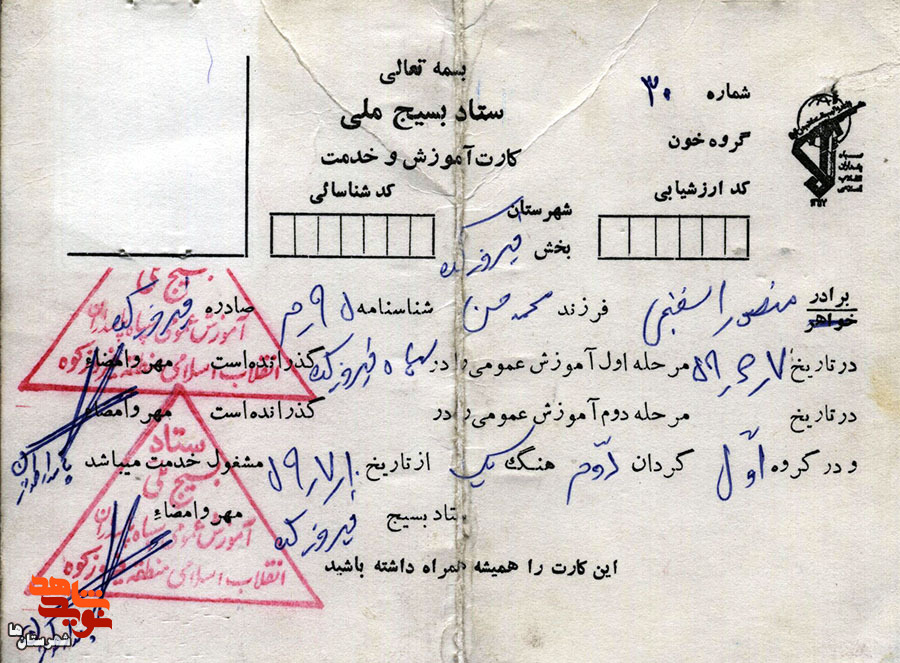 بسمه تعالی
شماره ۳۰
ستاد بسیج ملی
گروه خون
کارت آموزش و خدمت
کد ارزشیابی
کد شناسائی
شهرستان
بخش فیروزکوه
برادر منصور اسفنجی فرزند محمدحسن شناسنامه صادره فیروزکوه
خواهر
در تاریخ مرحله اول آموزش عمومی را در سپاه فیروزکوه گذرانده است مهر و امضاء
در تاریخ مرحله دوم آموزش عمومی را در گذرانده است مهر و امضاء
و در گروه اول گردان دوم هنگ یک از تاریخ ۵۹/۷/۱۰ مشغول خدمت میباشد
ستاد بسیج فیروزکوه مهر و امضاء
این کارت را همیشه همراه داشته باشید
بسیج ملی
آموزش عمومی سپاه پاسداران
انقلاب اسلامی منطقه فیروزکوه
ستاد
بسیج ملی
آموزش عمومی سپاه پاسداران
انقلاب اسلامی منطقه فیروزکوه
نوید شاهد
شهرستان‌ها